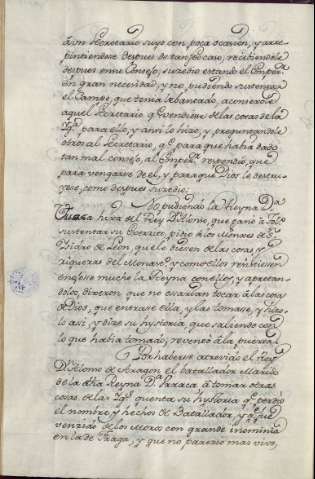 à un Secretario suyo con poca ocasion, y arre-
pintiendose despues de tan feo caso, recibiendole
despues en su Consejo, sucedio estando el Empor.
en gran necesidad, y no pudiendo sustentar
el Campo, que tenia lebantado, aconsejole
aquel Secretario qe. vendiesse de las cosas de la
Iga. para ello, y anssi lo hizo, y preguntandole
otros al Secretario, qe. para que habia dado
tan mal consejo, al Empor. respondio, que
para vengarse de el, y para que Dios le destru-
yese, como despues sucedio.
No pudiendo la Reyna Da.
Urraca hixa del Rey Dn. Alonso, que ganó à Todo.
sustentar su Exercito, pidio à los Monxes de Sn.
Ysidro de Leon, que le diesen de las cosas, y
riquezas del Monasterio, y como ellos rehusiesen
enojose mucho la Reyna con ellos, y apretan-
dolos, dixeron que no osarian tocar à las cosas
de Dios, que entrase ella, y las tomase, y hizo-
lo asi, y dize su hystoria que saliendo con
lo que habia tomado, rebentò à la puerta.
Por haberse atrevido el Rey
Dn. Alonso de Aragon el batallador Marido
de la dha Reyna Da. Urraca, à tomar otras
cosas de las Igas. quenta su hystoria qe. perdió
el nombre, y hechos de Batallador, y qe. fue
vencido de los Moros con grande ignominia
en la de Fraga, y que no parecio mas vivo,